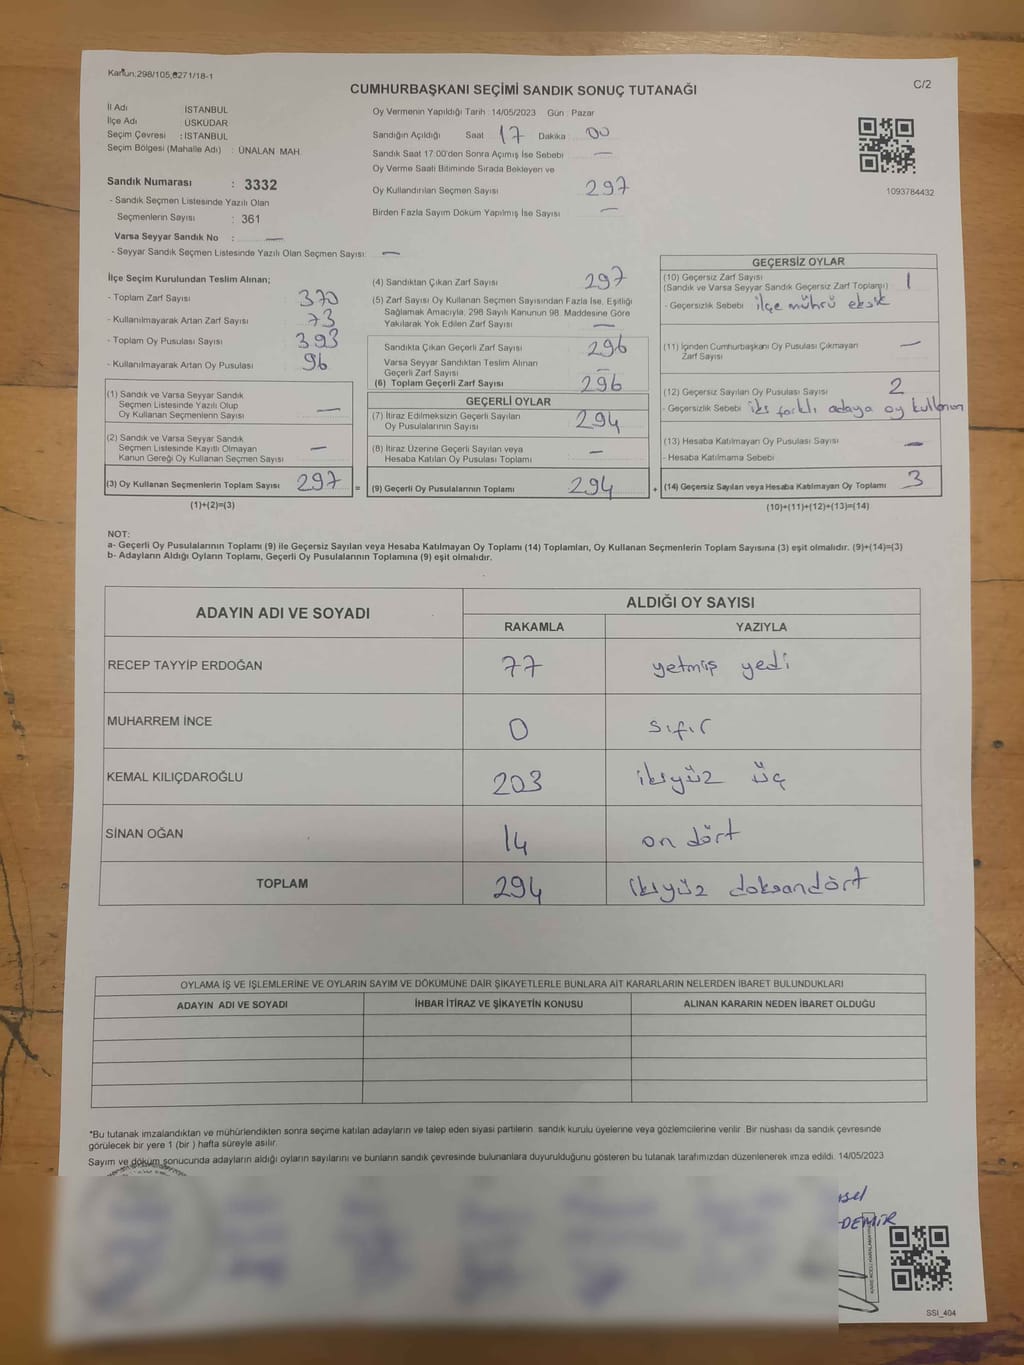 Kanun:298/105,6271/18-1
CUMHURBAŞKANI SEÇİMİ SANDIK SONUÇ TUTANAĞI
C/2
İl Adı : İSTANBUL
İlçe Adı : ÜSKÜDAR
Seçim Çevresi : İSTANBUL
Seçim Bölgesi (Mahalle Adı) : ÜNALAN MAH.
Sandık Numarası : 3332
- Sandık Seçmen Listesinde Yazılı Olan
Seçmenlerin Sayısı : 361
Varsa Seyyar Sandık No : —
- Seyyar Sandık Seçmen Listesinde Yazılı Olan Seçmen Sayısı: —
Oy Vermenin Yapıldığı Tarih : 14/05/2023 Gün : Pazar
Sandığın Açıldığı Saat 17 Dakika 00
Sandık Saat 17:00'den Sonra Açımış İse Sebebi —
Oy Verme Saati Bitiminde Sırada Bekleyen ve
Oy Kullandırılan Seçmen Sayısı 297
Birden Fazla Sayım Döküm Yapılmış İse Sayısı —
1093784432
İlçe Seçim Kurulundan Teslim Alınan;
- Toplam Zarf Sayısı 370
- Kullanılmayarak Artan Zarf Sayısı 73
- Toplam Oy Pusulası Sayısı 393
- Kullanılmayarak Artan Oy Pusulası 96
(1) Sandık ve Varsa Seyyar Sandık
Seçmen Listesinde Yazılı Olup
Oy Kullanan Seçmenlerin Sayısı —
(2) Sandık ve Varsa Seyyar Sandık
Seçmen Listesinde Kayıtlı Olmayan
Kanun Gereği Oy Kullanan Seçmen Sayısı —
(3) Oy Kullanan Seçmenlerin Toplam Sayısı 297 =
(1)+(2)=(3)
(4) Sandıktan Çıkan Zarf Sayısı 297
(5) Zarf Sayısı Oy Kullanan Seçmen Sayısından Fazla İse, Eşitliği
Sağlamak Amacıyla; 298 Sayılı Kanunun 98. Maddesine Göre
Yakılarak Yok Edilen Zarf Sayısı —
Sandıkta Çıkan Geçerli Zarf Sayısı 296
Varsa Seyyar Sandıktan Teslim Alınan
Geçerli Zarf Sayısı —
(6) Toplam Geçerli Zarf Sayısı 296
GEÇERLİ OYLAR
(7) İtiraz Edilmeksizin Geçerli Sayılan
Oy Pusulalarının Sayısı 294
(8) İtiraz Üzerine Geçerli Sayılan veya
Hesaba Katılan Oy Pusulası Toplamı —
(9) Geçerli Oy Pusulalarının Toplamı 294 +
GEÇERSİZ OYLAR
(10) Geçersiz Zarf Sayısı
(Sandık ve Varsa Seyyar Sandık Geçersiz Zarf Toplamı) 1
- Geçersizlik Sebebi ilçe mührü eksik
(11) İçinden Cumhurbaşkanı Oy Pusulası Çıkmayan
Zarf Sayısı —
(12) Geçersiz Sayılan Oy Pusulası Sayısı 2
- Geçersizlik Sebebi iki farklı adaya oy kullanım
(13) Hesaba Katılmayan Oy Pusulası Sayısı —
- Hesaba Katılmama Sebebi
(14) Geçersiz Sayılan veya Hesaba Katılmayan Oy Toplamı 3
(10)+(11)+(12)+(13)=(14)
NOT:
a- Geçerli Oy Pusulalarının Toplamı (9) ile Geçersiz Sayılan veya Hesaba Katılmayan Oy Toplamı (14) Toplamları, Oy Kullanan Seçmenlerin Toplam Sayısına (3) eşit olmalıdır. (9)+(14)=(3)
b- Adayların Aldığı Oyların Toplamı, Geçerli Oy Pusulalarının Toplamına (9) eşit olmalıdır.
ADAYIN ADI VE SOYADI ALDIĞI OY SAYISI
RAKAMLA YAZIYLA
RECEP TAYYİP ERDOĞAN 77 yetmiş yedi
MUHARREM İNCE 0 sıfır
KEMAL KILIÇDAROĞLU 203 ikiyüz üç
SİNAN OĞAN 14 on dört
TOPLAM 294 ikiyüz doksandört
OYLAMA İŞ VE İŞLEMLERİNE VE OYLARIN SAYIM VE DÖKÜMÜNE DAİR ŞİKAYETLERLE BUNLARA AİT KARARLARIN NELERDEN İBARET BULUNDUKLARI
ADAYIN ADI VE SOYADI İHBAR İTİRAZ VE ŞİKAYETİN KONUSU ALINAN KARARIN NEDEN İBARET OLDUĞU
*Bu tutanak imzalandıktan ve mühürlendikten sonra seçime katılan adayların ve talep eden siyasi partilerin sandık kurulu üyelerine veya gözlemcilerine verilir. Bir nüshası da sandık çevresinde
görülecek bir yere 1 (bir ) hafta süreyle asılır.
Sayım ve döküm sonucunda adayların aldığı oyların sayılarını ve bunların sandık çevresinde bulunanlara duyurulduğunu gösteren bu tutanak tarafımızdan düzenlenerek imza edildi. 14/05/2023
DEMİR
SSI_404